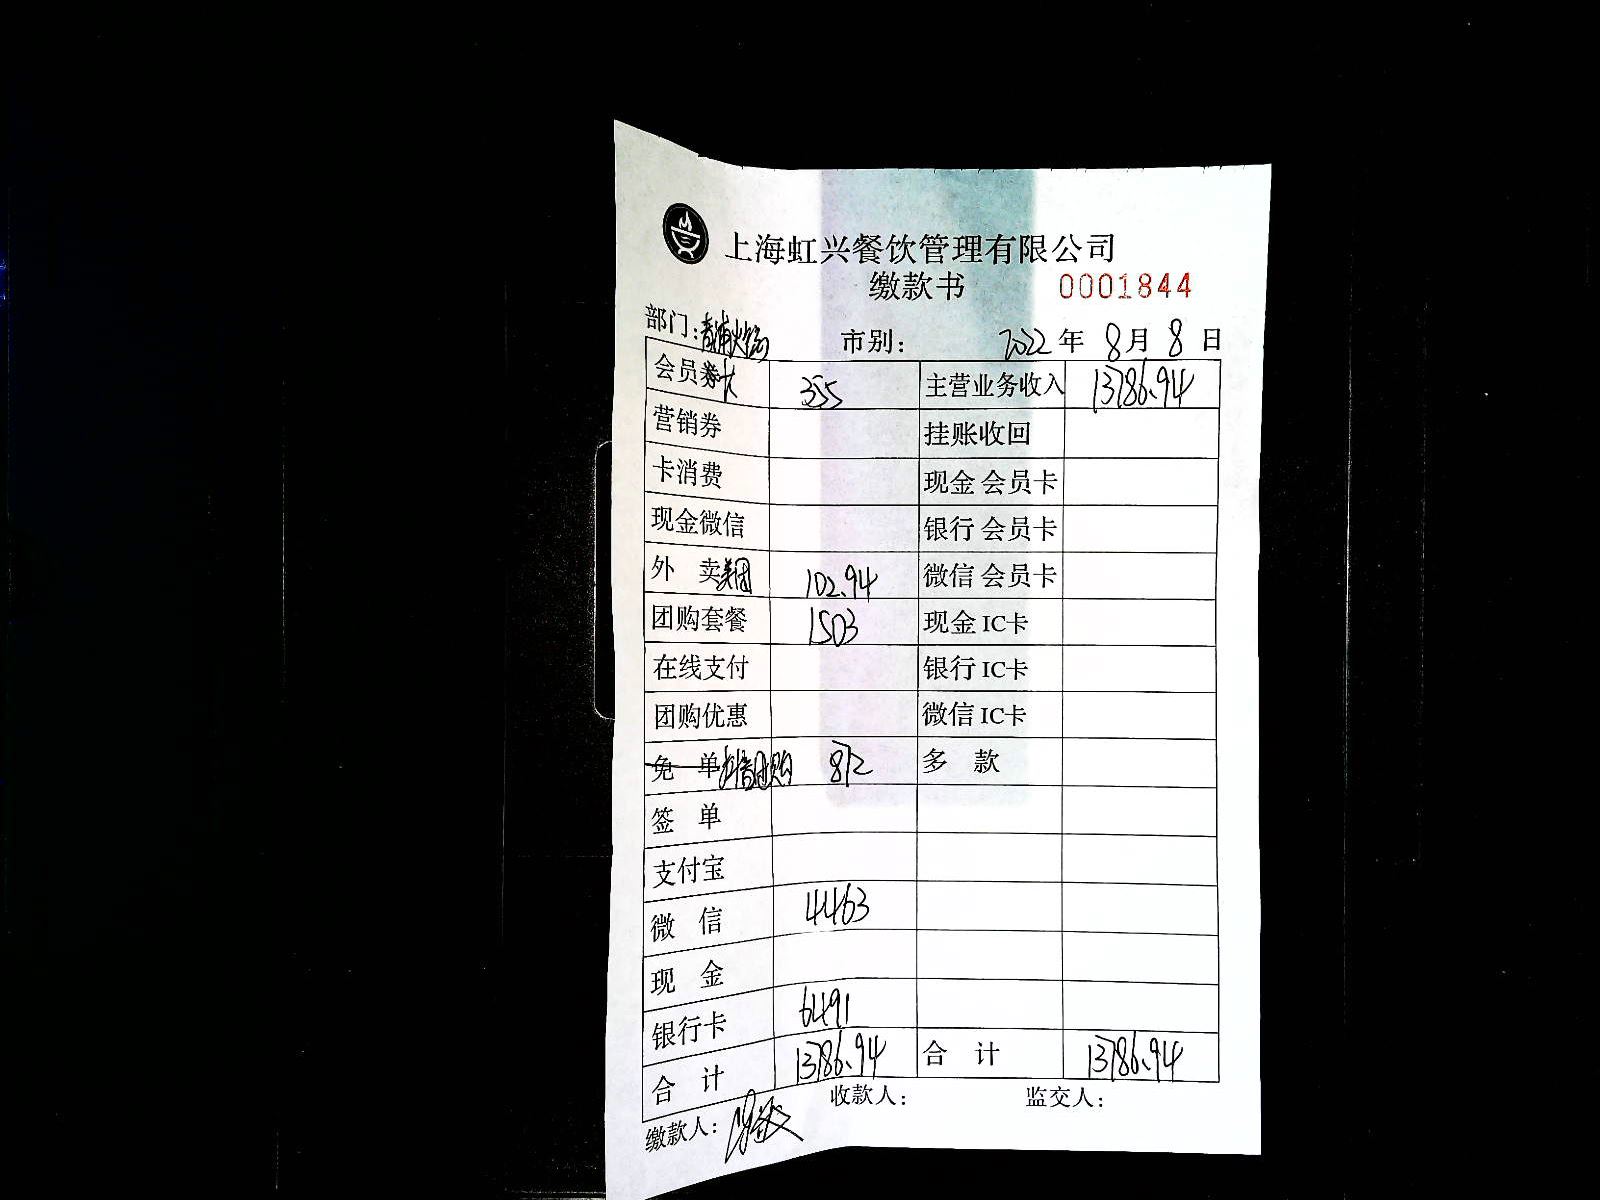 上海虹兴餐饮管理有限公司
缴款书 0001844
部门:青浦火锅 市别: 2022 年 8 月 8 日
会员券大 355 主营业务收入 13786.94
营销券 挂账收回
卡消费 现金 会员卡
现金微信 银行 会员卡
外 卖美团 102.94 微信 会员卡
团购套餐 1503 现金 IC卡
在线支付 银行 IC卡
团购优惠 微信 IC卡
免 单抖音团购 872 多 款
签 单
支付宝
微 信 4463
现 金
银行卡 6491
合 计 13786.94 合 计 13786.94
缴款人: 收款人: 监交人: